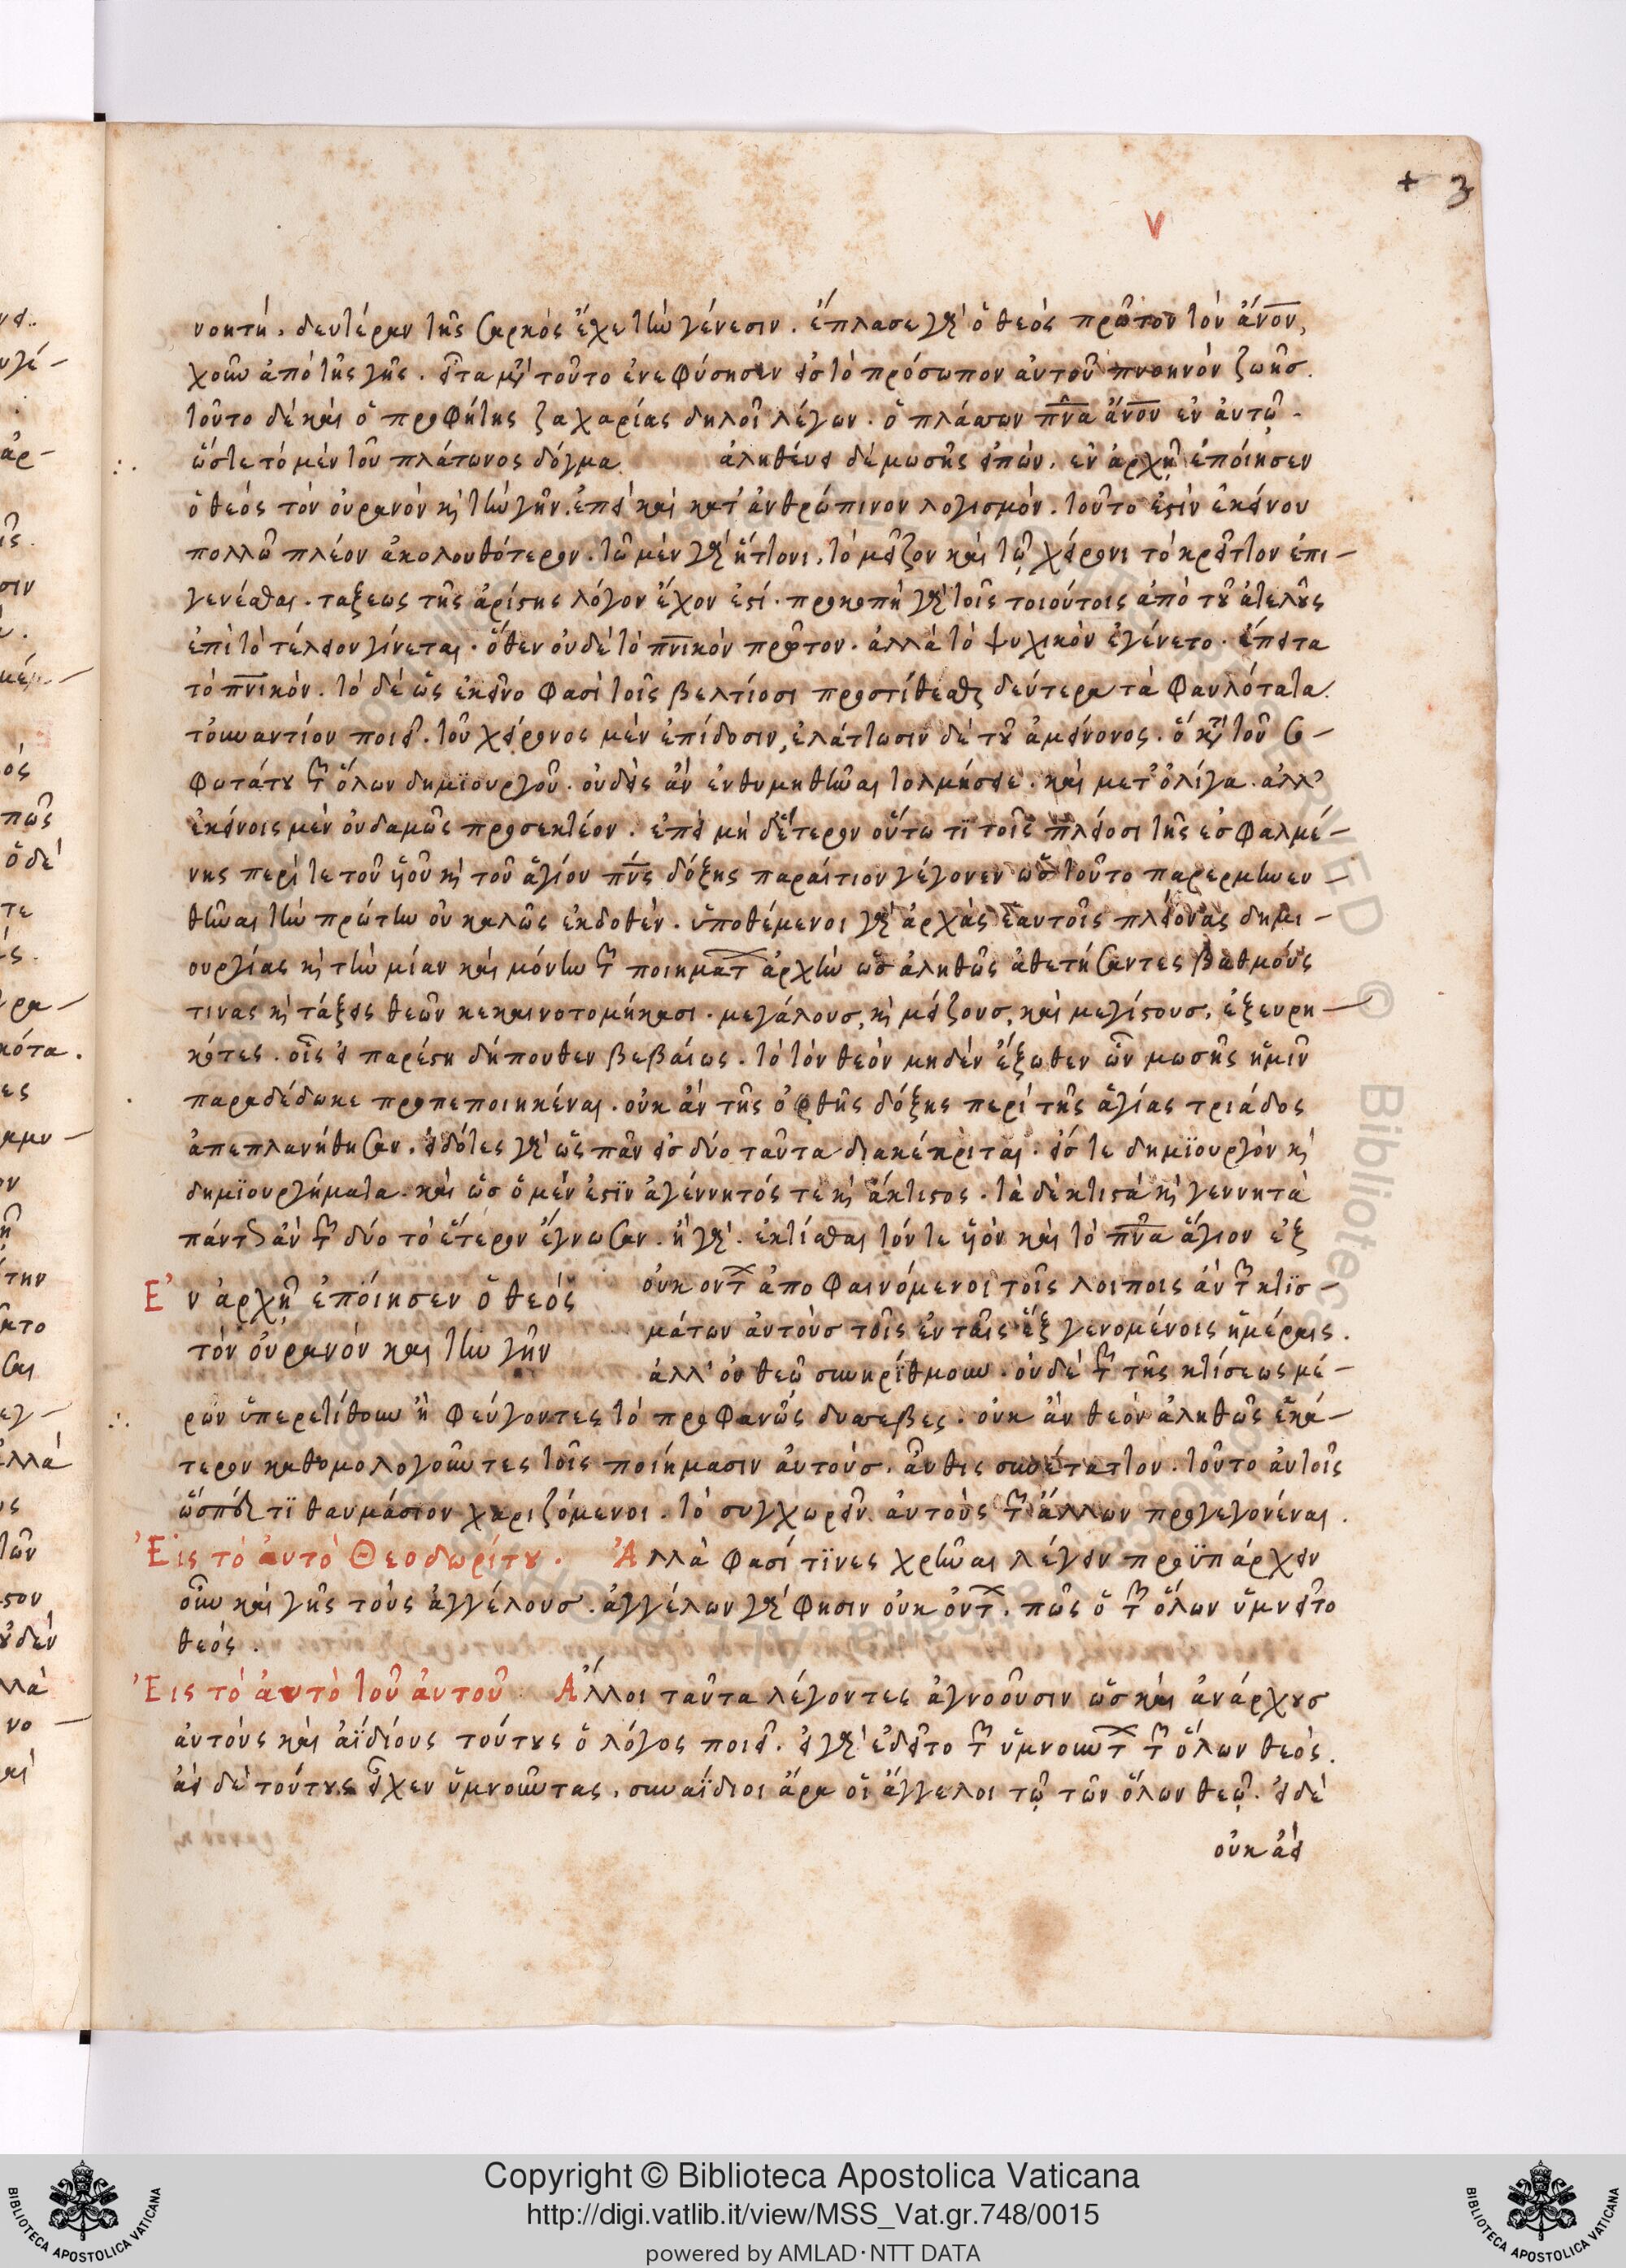 + 3
V
νοητή. δευτέραν τῆς σαρκὸς ἔχει τὴν γένεσιν. ἔπλασε γὰρ ὁ θεὸς πρῶτον τὸν ἄν̅ο̅ν̅,
χοῦν ἀπὸ τῆς γῆς. εἶτα μετὰ τοῦτο ἐνεφύσησεν εἰς τὸ πρόσωπον αὐτοῦ πνοὴν ζωῆσ.
τοῦτο δὲ καὶ ὁ προφήτης ζαχαρίας δηλοῖ λέγων. ὁ πλάσσων π̅ν̅α̅ ἄν̅ο̅υ̅ ἐν αὐτῷ.
ὥστε τὸ μὲν τοῦ πλάτωνος δόγμα ἀληθεύει δὲ μωσῆς εἰπών. ἐν ἀρχῇ ἐποίησεν
ὁ θεός τὸν οὐρανόν καὶ τὴν γῆν. ἐπεὶ καὶ κατ' ἀνθρώπινον λογισμὸν. τοῦτο ἐστὶν ἐκείνου
πολλῶ πλέον ἀκολουθότερον. τῶ μὲν γὰρ ἥττονι, τὸ μεῖζον καὶ τῷ χείρονι τὸ κρεῖττον ἐπι-
γενέσθαι. ταξεως τῆς ἀρίστης λόγον ἔχον ἐστί. προκοπὴ γὰρ τοῖς τοιούτοις ἀπὸ τοῦ ἀτελοῦς
ἐπὶ τὸ τέλειον γίνεται. ὅθεν οὐδὲ τὸ π̅ν̅ικὸν πρῶτον. ἀλλὰ τὸ ψυχικὸν ἐγένετο. ἔπειτα
τὸ π̅ν̅ικὸν. τὸ δὲ ὡς ἐκεῖνο φασὶ τοῖς βελτίοσι προστίθεσθαι δεύτερα τὰ φαυλότατα.
τὸ ἐναντίον ποιεῖ. τοῦ χείρονος μὲν ἐπίδοσιν, ἐλάττωσιν δὲ τοῦ ἀμείνονος. ὅ κατὰ τοῦ σο-
φωτάτου τῶν ὅλων δημϊουργοῦ. οὐδεὶς ἂν ἐνθυμηθῆναι τολμήσειε. καὶ μετ' ὀλίγα. ἀλλ'
ἐκείνοις μὲν οὐδαμῶς προσεκτέον. ἐπεὶ μὴ δ' ἕτερον οὕτω τϊ τοῖς πλείοσι τῆς ἐσφαλμέ-
νης περὶ τε τοῦ ὑϊοῦ καὶ τοῦ ἁγίου π̅ν̅ς̅ δόξης παραίτιον γέγονεν ὡς τοῦτο παρερμηνευ-
θῆναι τὴν πρώτην οὐ καλῶς ἐκδοθὲν. ὑποθέμενοι γὰρ ἀρχὰς ἑαυτοῖς πλείονας δημι-
ουργίας καὶ τὴν μίαν καὶ μόνην τῶν ποιημάτων ἀρχὴν ὡς ἀληθῶς ἀθετήσαντες βαθμούς
τινας καὶ τάξεις θεῶν κεκαινοτομήκασι. μεγάλουσ, καὶ μείζουσ, καὶ μεγίστουσ, ἐξευρη-
κότες. οἷς εἰ παρέστη δήπουθεν βεβαίως. τὸ τὸν θεὸν μηδὲν ἔξωθεν ὧν μωσῆς ἡμῖν
παραδέδωκε προπεποιηκέναι. οὐκ ἂν τῆς ὀρθῆς δόξης περὶ τῆς ἁγίας τριάδος
ἀπεπλανήθησαν. εἰδότες γὰρ ὡς πᾶν εἰς δύο ταῦτα διακέκριται. εἴς τε δημϊουργὸν καὶ
δημϊουργήματα. καὶ ὡσ ὁ μὲν ἐστϊν ἀγέννητός τε καὶ ἄκτιστος. τὰ δὲ κτιστὰ καὶ γεννητὰ
πάντως ἂν τῶν δύο τὸ ἕτερον ἔγνωσαν. ἢ γὰρ. ἐκτίσθαι τόν τε ὑϊὸν καὶ τὸ π̅ν̅α̅ ἅγιον ἐξ
Ἐν ἀρχῇ ἐποίησεν ὁ θεός
τὸν οὐρανόν και τὴν γῆν
οὐκ οντων ἀποφαινόμενοι τοῖς λοιποις ἂν τῶν κτϊσ-
μάτων αὐτοὺσ τοῖς ἐν ταῖς ἓξ γενομένοις ἡμέραις.
ἀλλ' οὐ θεῶ συνηρίθμουν. οὐδὲ τῶν τῆς κτίσεως με-
ρῶν ὑπερετίθουν ἢ φεύγοντες τὸ προφανῶς δυσσεβες. οὐκ ἂν θεὸν ἀληθῶς ἑκά-
τερον καθομολογοῦντες τοῖς ποιήμασιν αὐτούσ. αὖθις συνέταττον. τοῦτο αὐτοῖς
ὥσπερ τϊ θαυμάσιον χαριζόμενοι. τὸ συγχωρεῖν αὐτοὺς τῶν ἄλλων προγεγονέναι.
Ἐις τὸ ἀυτὸ Θεοδωρίτου. Ἀλλὰ φασί τϊνες χρῆναι λέγειν προϋπάρχειν
οὐνου καὶ γῆς τοὺς ἀγγέλουσ. ἀγγέλων γὰρ φησιν οὐκ ὄντων. πῶς ὁ τῶν ὅλων ὑμνεῖτο
θεός.
Ἐις τὸ ἀυτὸ τοῦ ἀυτοῦ Ἄλλοι ταῦτα λέγοντες ἀγνοοῦσιν ὡσ καὶ ἀνάρχουσ
ἀυτοὺς καὶ ἀϊδίους τούτους ὁ λόγος ποιεῖ. εἰ γὰρ ἐδεῖτο τῶν ὑμνούντων τῶν ὅλων θεὸς.
ἀεὶ δὲ τούτους εἶχεν ὑμνοῦντας, συναΐδιοι ἄρα οἱ ἄγγελοι τῷ τῶν ὅλων θεῷ. εἰ δὲ
οὐκ ἀεὶ
Copyright © Biblioteca Apostolica Vaticana
http://digi.vatlib.it/view/MSS_Vat.gr.748/0015
powered by AMLAD·NTT DATA